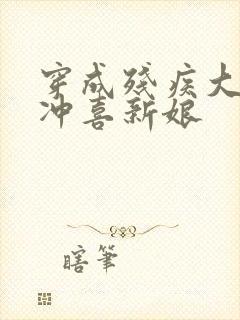 穿成残疾大
冲喜新娘
瞎笔